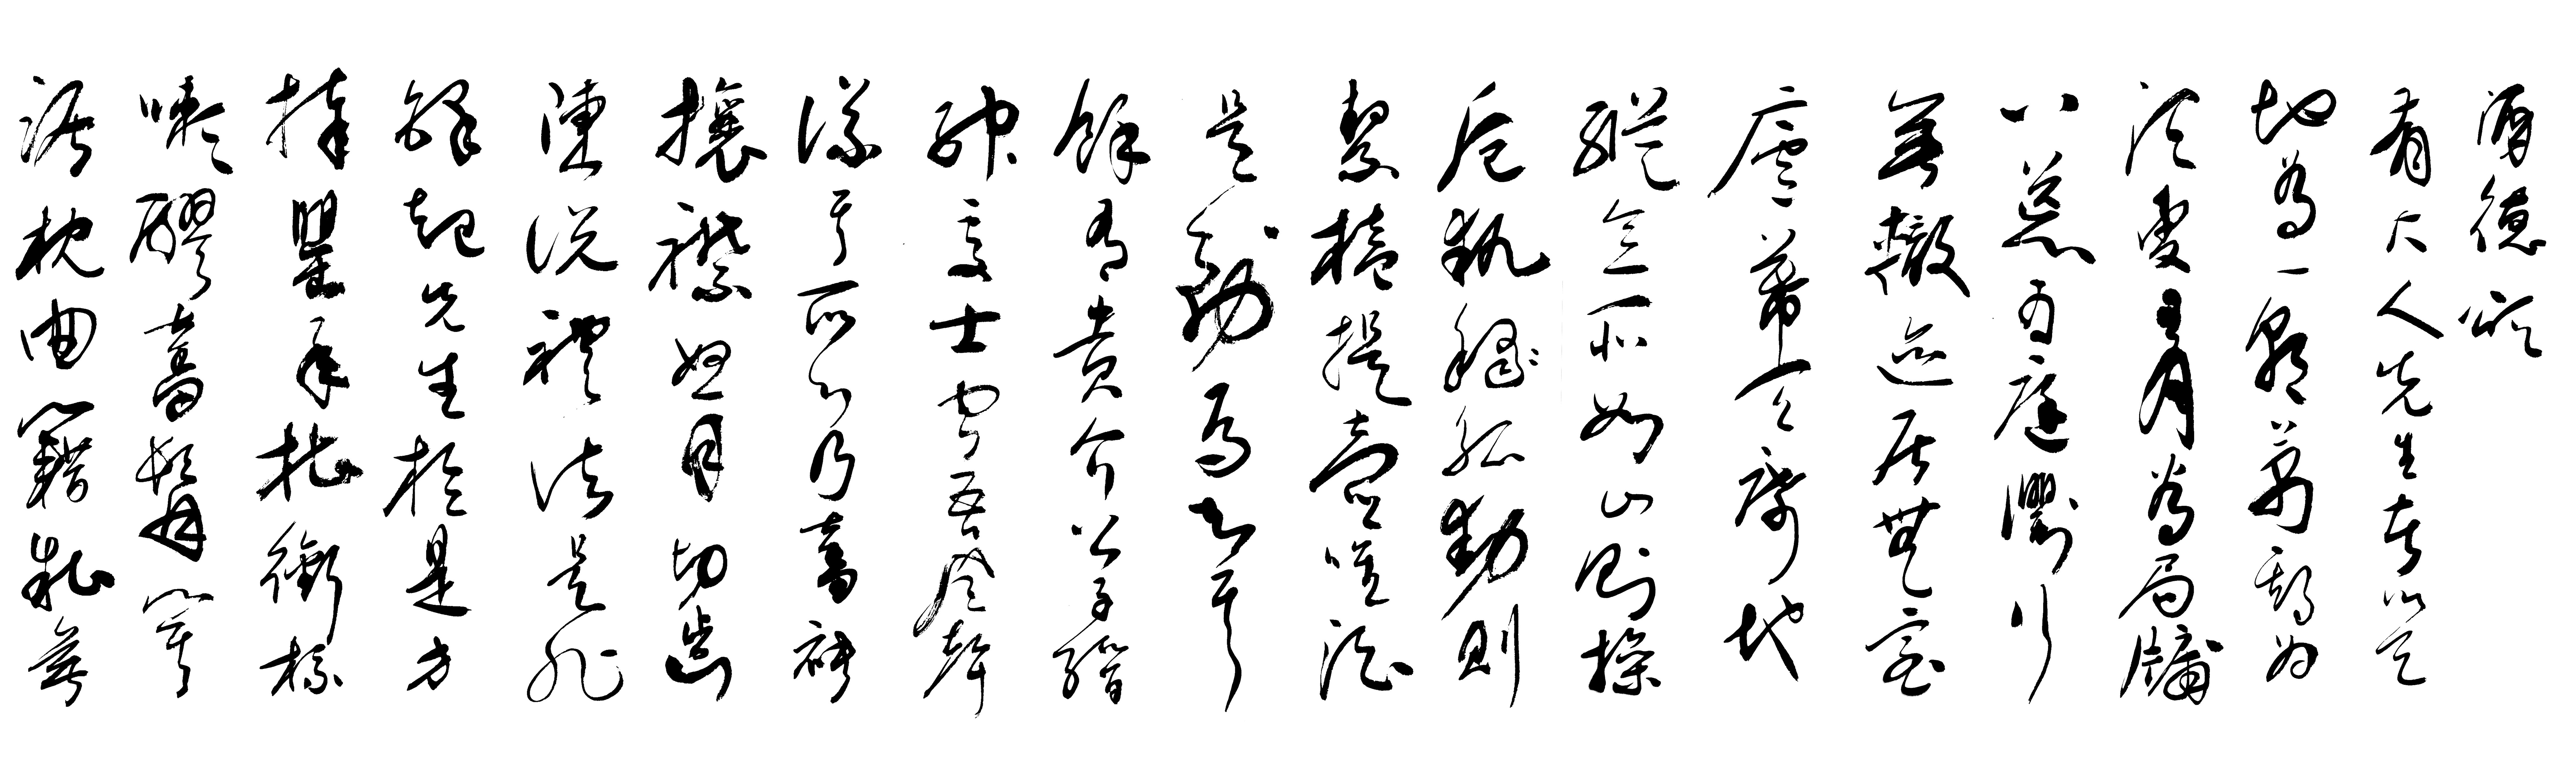 酒德頌
有大人先生者以天
地為一朝萬期為
須臾日月為扃牖
八荒為庭衢行
無轍跡居無室
廬幕天席地
縱意所如止則操
卮執觚動則
挈榼提壺唯酒
是務焉知其
餘有貴介公子縉
紳處士聞吾風聲
議其所以乃奮袂
攘襟怒目切齒
陳說禮法是非
鋒起先生於是方
捧罌承槽銜杯
漱醪奮髯箕
踞枕曲籍糟無